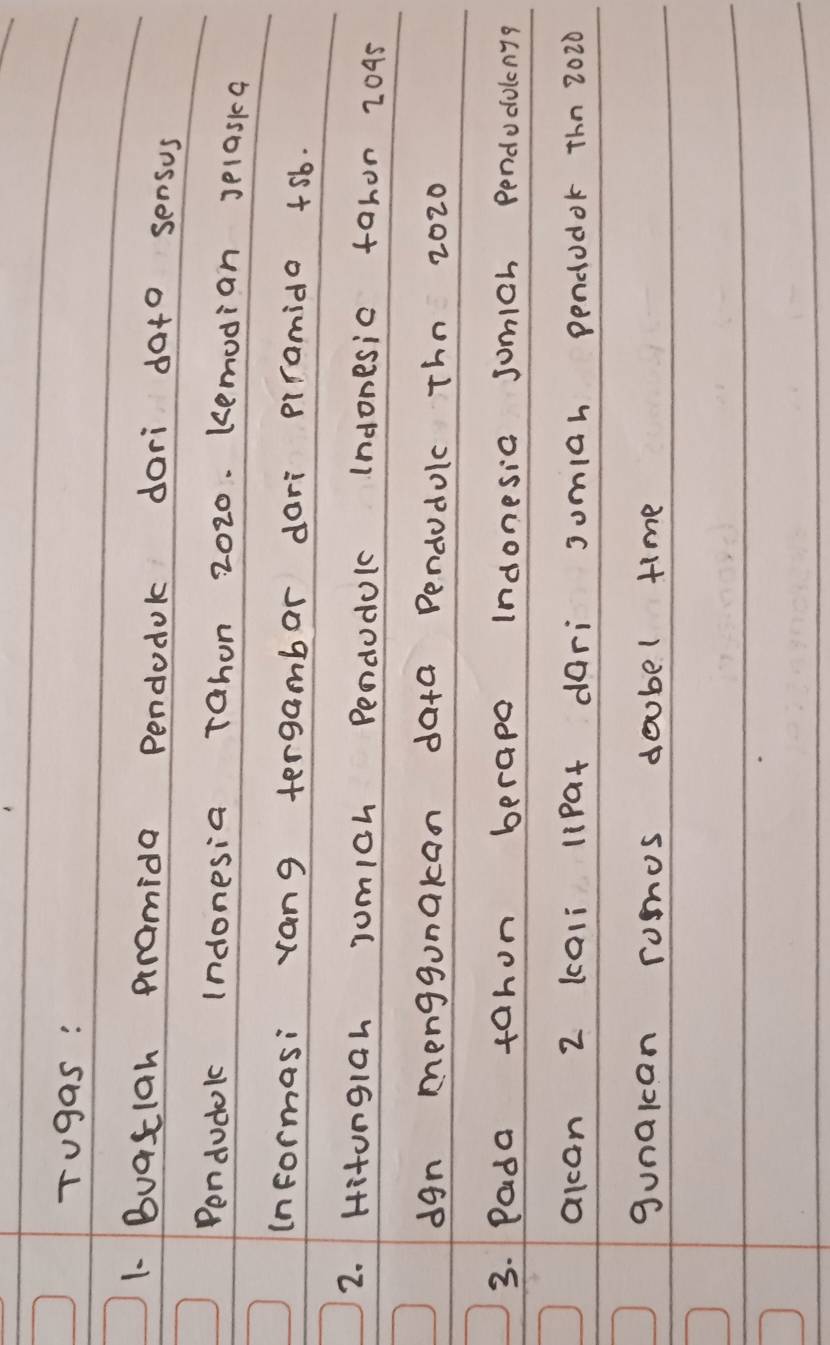 Tugas:
1. Buatlah Piramida Penduduk dari data sensus
Penduduk Indonesia Tahun 2020. Kemudian jelaska
Informasi yang tergambar dari piramida tsb.
2. Hitunglah jumlah Penduduk Indonesia tahun 2045
dgn menggunakan data Penduduk Thn 2020
3. Pada tahun berapa Indonesia jumlah Penduduknya
akan 2 kali lipat dari jumlah penduduk Thn 2020
gunakan rumus doubel time